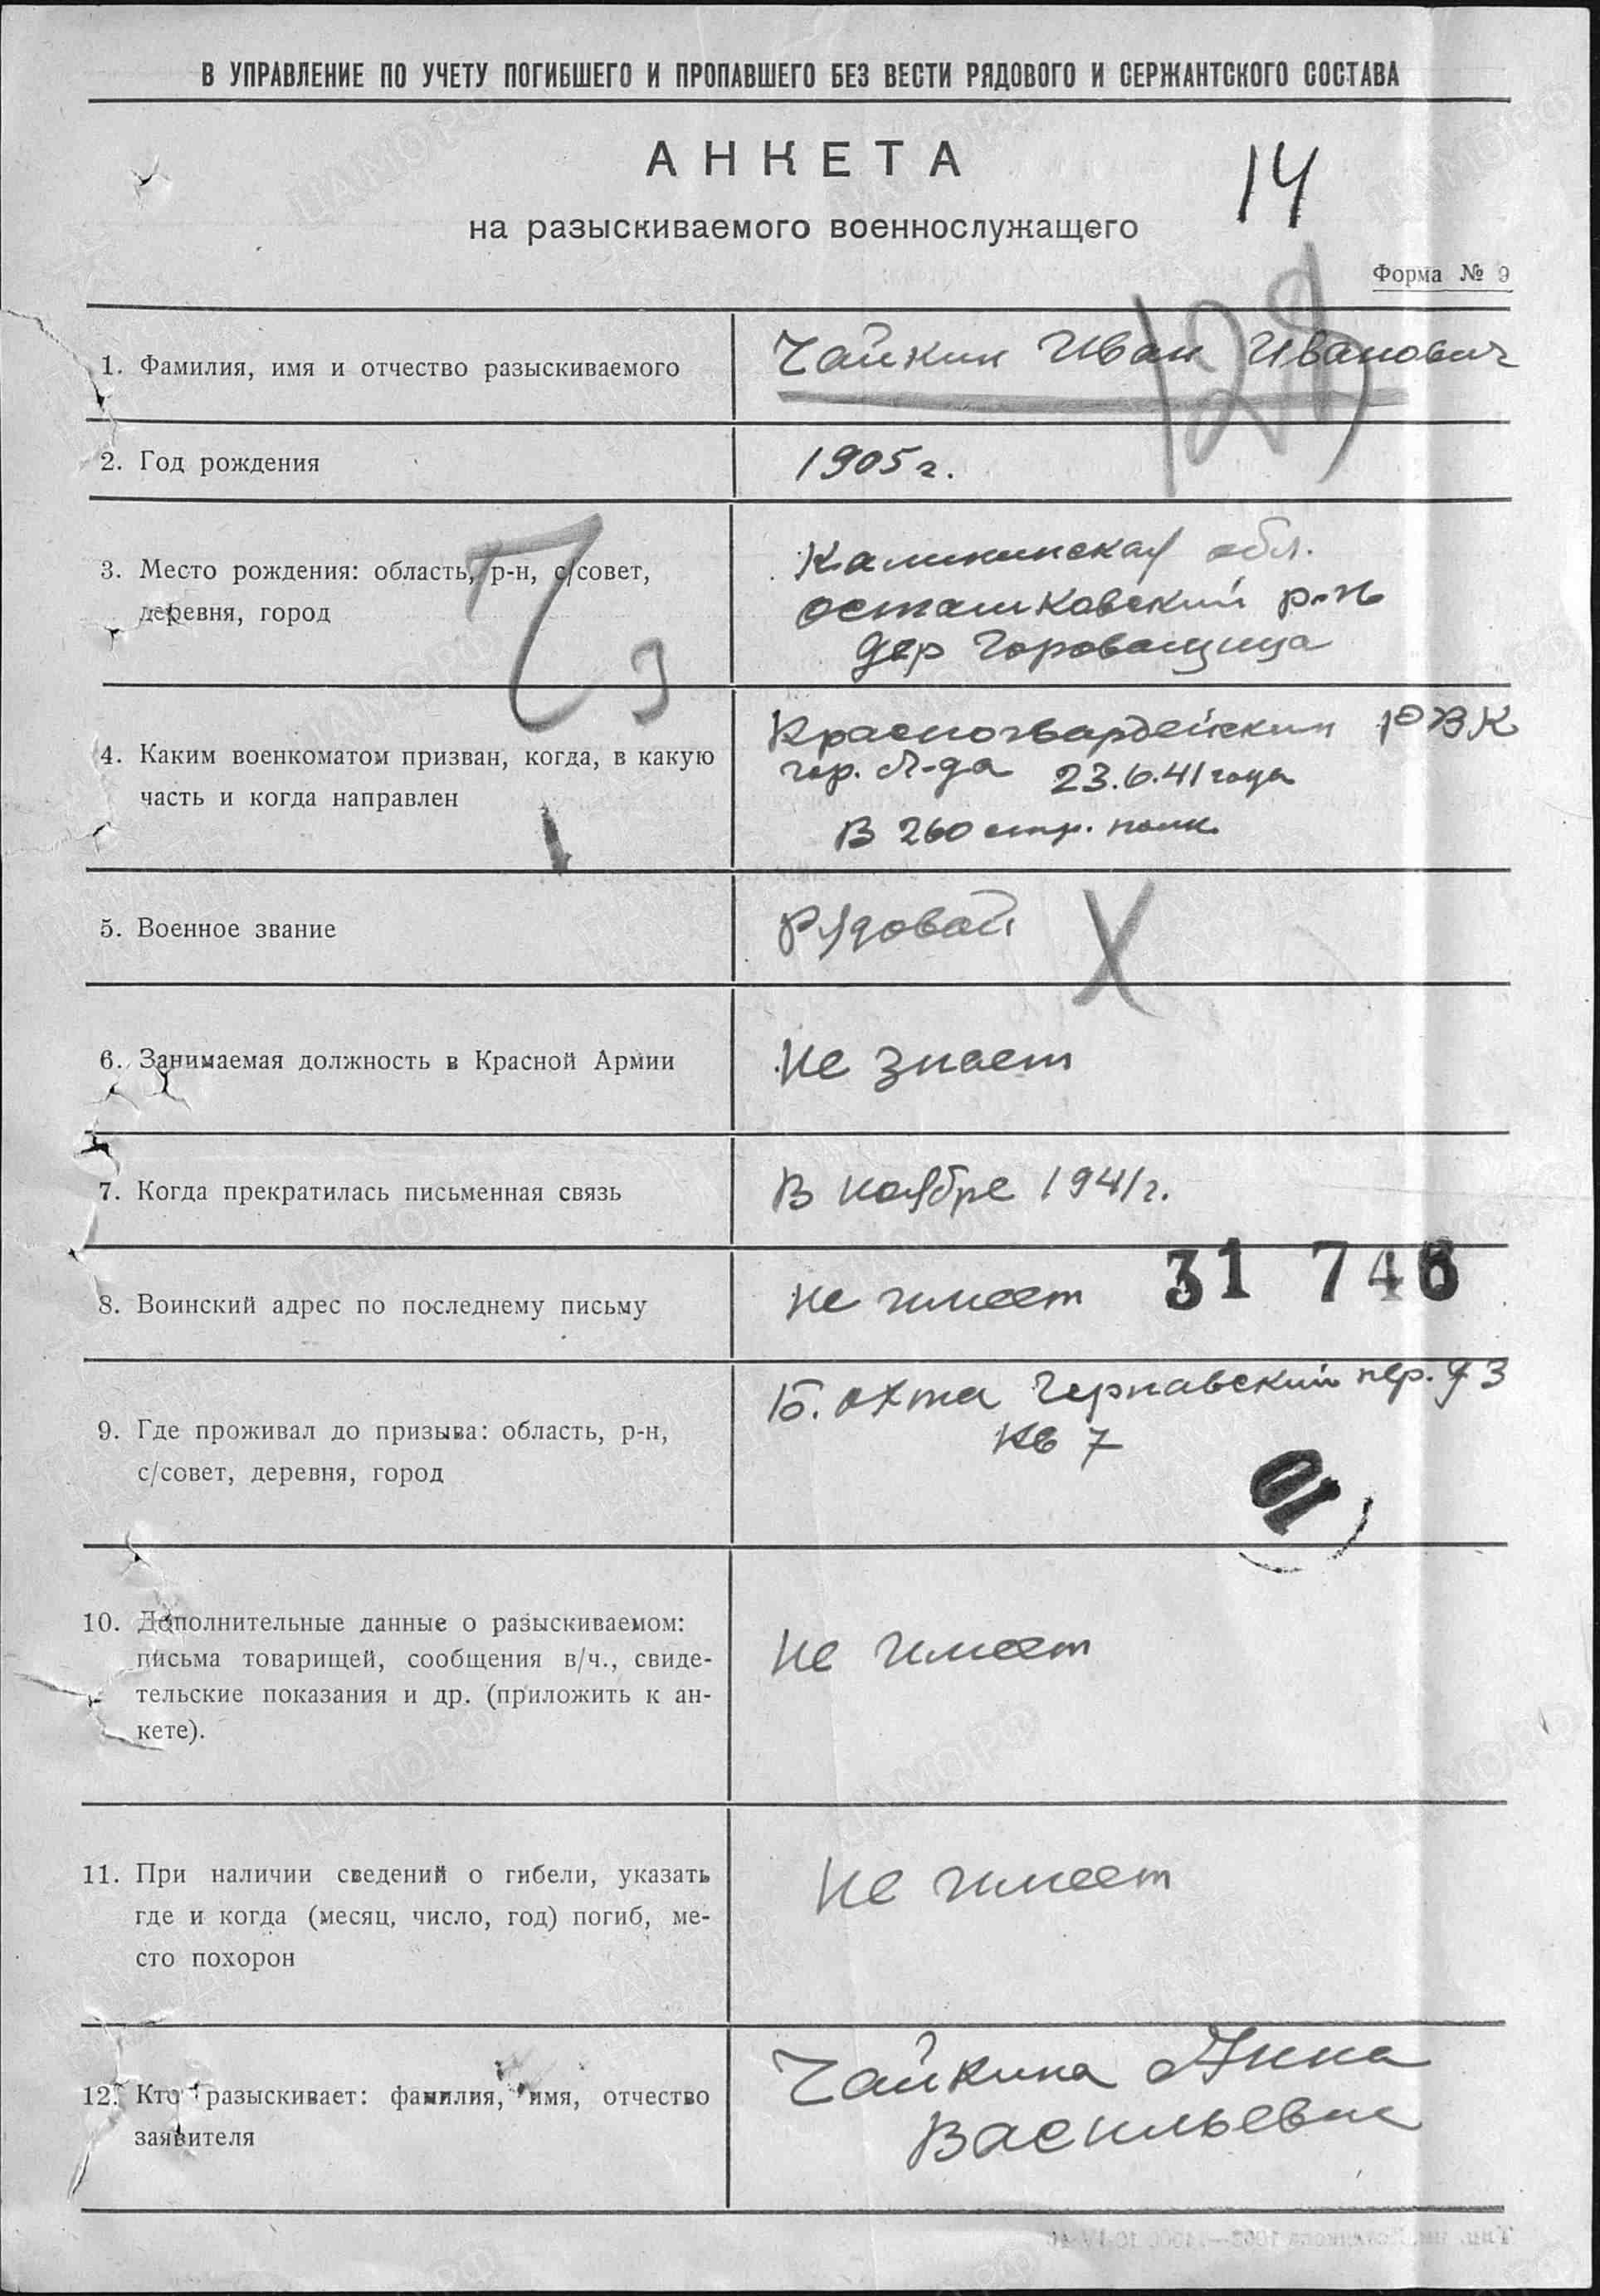 В УПРАВЛЕНИЕ ПО УЧЕТУ ПОГИБШЕГО И ПРОПАВШЕГО БЕЗ ВЕСТИ РЯДОВОГО И СЕРЖАНТСКОГО СОСТАВА
АНКЕТА
14
на разыскиваемого военнослужащего
Форма № 9
128
1. Фамилия, имя и отчество разыскиваемого
Чайкин Иван Иванович
2. Год рождения
1905 г.
3. Место рождения: область, р-н, с/совет,
деревня, город
Калининская обл.
Осташковский р-н
дер Горовастица
4. Каким военкоматом призван, когда, в какую
часть и когда направлен
Красногвардейским РВК
гор. Л-да 23.6.41 года
В 260 стр. полк.
5. Военное звание
Рядовой
6. Занимаемая должность в Красной Армии
Не знает
7. Когда прекратилась письменная связь
В ноябре 1941 г.
8. Воинский адрес по последнему письму
Не имеет
31 746
9. Где проживал до призыва: область, р-н,
с/совет, деревня, город
Б. Охта Чернавский пер. д 3
кв 7
10. Дополнительные данные о разыскиваемом:
письма товарищей, сообщения в/ч., свиде-
тельские показания и др. (приложить к ан-
кете).
Не имеет
11. При наличии сведений о гибели, указать
где и когда (месяц, число, год) погиб, ме-
сто похорон
Не имеет
12. Кто разыскивает: фамилия, имя, отчество
заявителя
Чайкина Анна
Васильевна